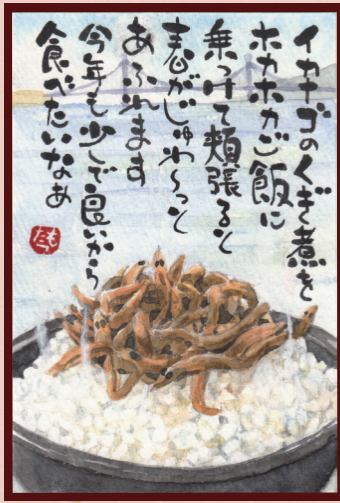 イカナゴのくぎ煮を
ホカホカご飯に
乗っけて頬張ると
春がじゅわ〜っと
あふれます
今年も少しで良いから
食べたいなあ